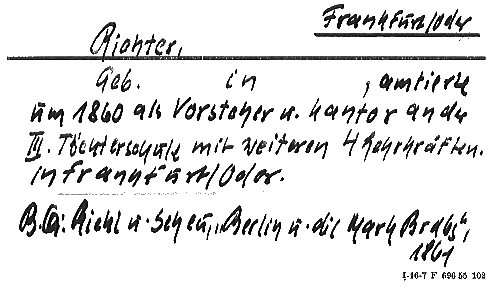 Frankfurt/Oder
Richter,
Geb. in , amtierte
um 1860 als Vorsteher u. Kantor an der
III. Töchterschule mit weiteren 4 Lehrkräften.
in Frankfurt/Oder.
B.Q: Riehl u. Scheu, „Berlin u. die Mark Brdbg",
1861
I-16-7 F 696 55 102